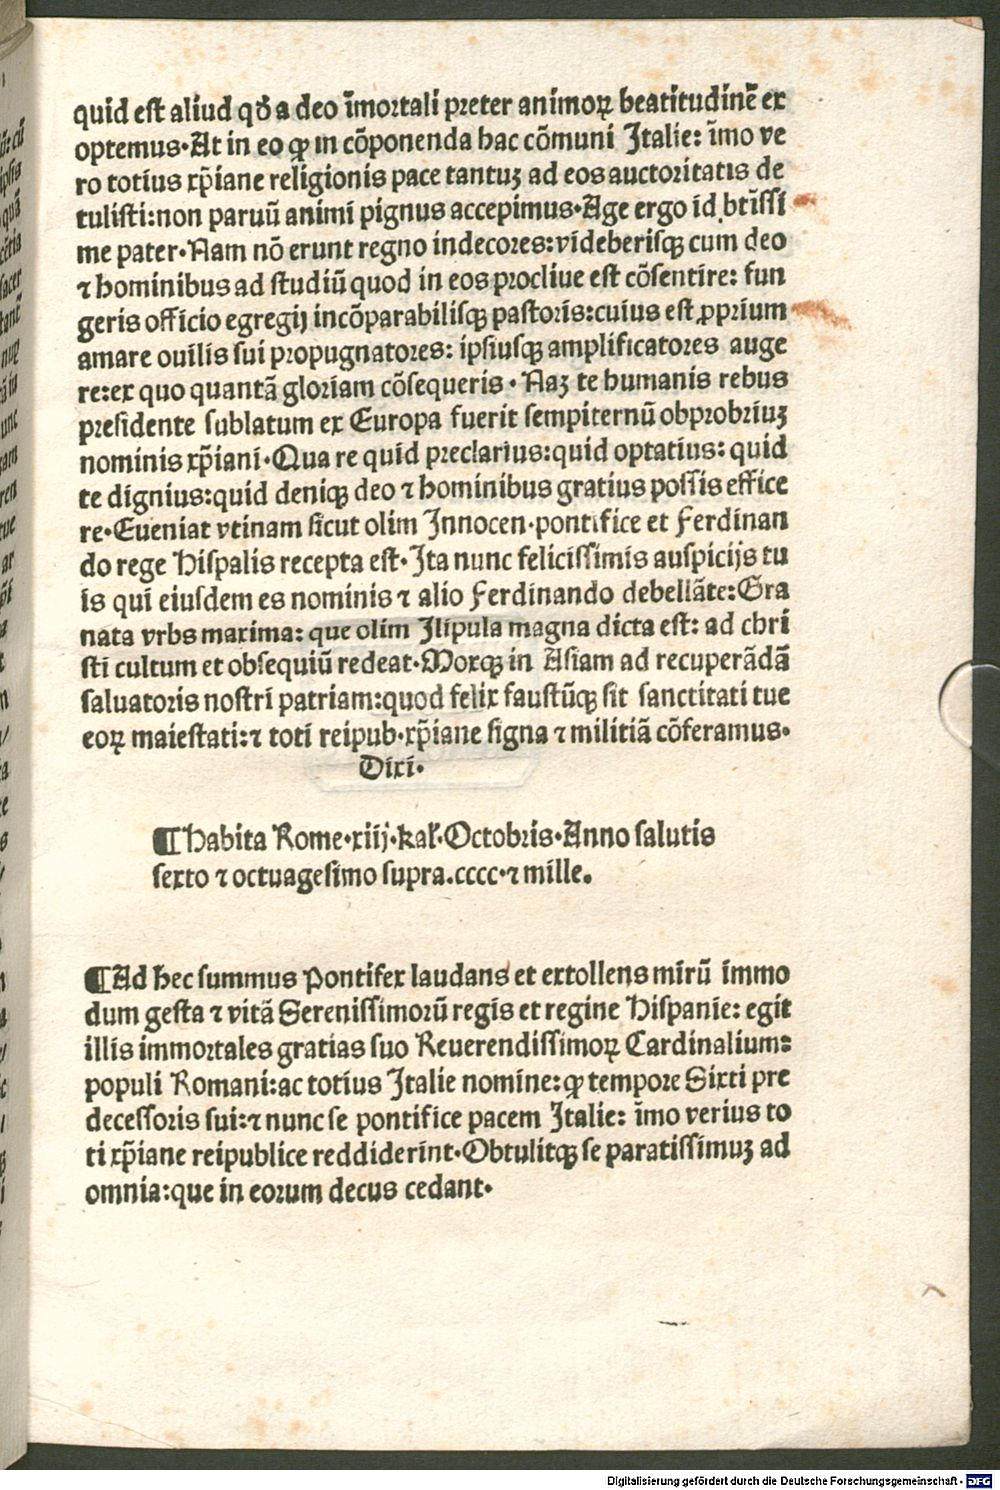 quid est aliud qđ a deo īmortali preter animoꝝ beatitudinē ex
optemus·At in eo ꝙ in cōponenda hac cōmuni Italie: īmo ve
ro totius xp̄iane religionis pace tantuꝫ ad eos auctoritatis de
tulisti:non paruū animi pignus accepimus·Age ergo id btīssi
me pater·Nam nō erunt regno indecores:videberisqꝫ cum deo
⁊ hominibus ad studiū quod in eos procliue est cōsentire: fun
geris officio egregij incōparabilisqꝫ pastoris:cuius est ꝓprium
amare ouilis sui propugnatores: ipsiusqꝫ amplificatores auge
re:ex quo quantā gloriam cōsequeris·Naꝫ te humanis rebus
presidente sublatum ex Europa fuerit sempiternū obprobriuꝫ
nominis xp̄iani·Qua re quid preclarius:quid optatius: quid
te dignius:quid deniqꝫ deo ⁊ hominibus gratius possis effice
re·Eueniat vtinam sicut olim Innocen·pontifice et Ferdinan
do rege Hispalis recepta est·Ita nunc felicissimis auspicijs tu
is qui eiusdem es nominis ⁊ alio Ferdinando debellāte:Gra
nata vrbs maxima: que olim Ilipula magna dicta est: ad chri
sti cultum et obsequiū redeat·Moxqꝫ in Asiam ad recuperādā
saluatoris nostri patriam:quod felix faustūqꝫ sit sanctitati tue
eoꝝ maiestati:⁊ toti reipub·xp̄iane signa ⁊ militiā cōferamus·
Dixi·
¶Habita Rome·xiij·kal·Octobris·Anno salutis
sexto ⁊ octuagesimo supra.cccc·⁊ mille.
¶Ad hec summus Pontifex laudans et extollens mirū immo
dum gesta ⁊ vitā Serenissimorū regis et regine Hispanie: egit
illis immortales gratias suo Reuerendissimoꝝ Cardinalium:
populi Romani:ac totius Italie nomine:ꝙ tempore Sixti pre
decessoris sui:⁊ nunc se pontifice pacem Italie: īmo verius to
ti xp̄iane reipublice reddiderint·Obtulitqꝫ se paratissimuꝫ ad
omnia:que in eorum decus cedant·
Digitalisierung gefördert durch die Deutsche Forschungsgemeinschaft - DFG